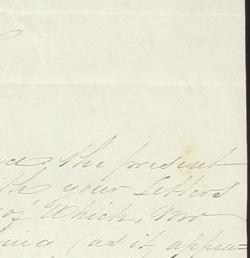 the present
with your Letters
of Which, Mr
(as it appea=